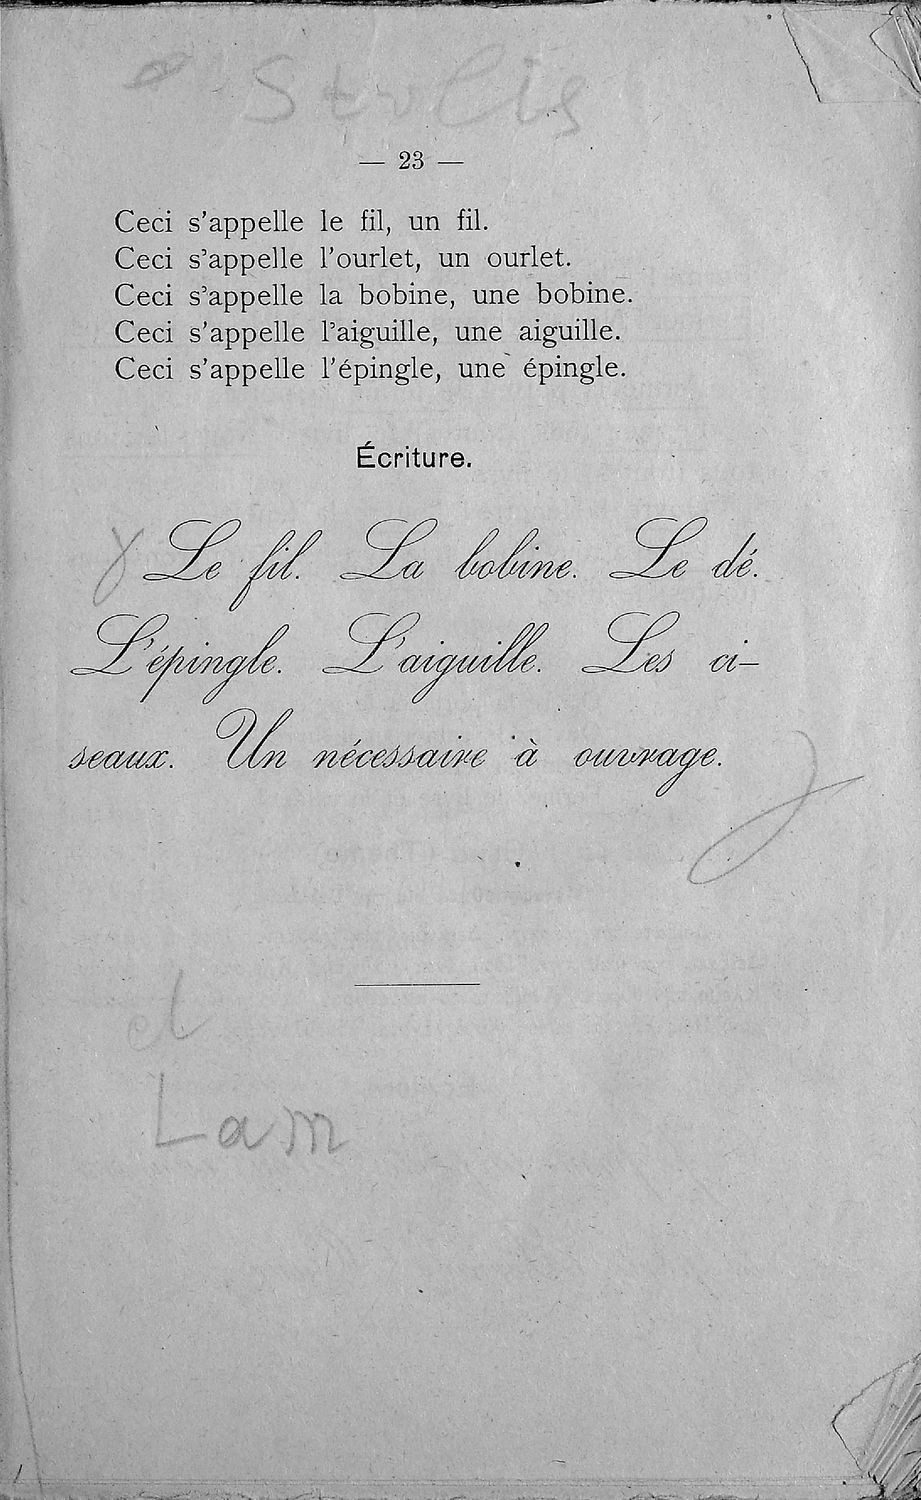 — 23 —
Ceci s'appelle le fil, un fil.
Ceci s'appelle l'ourlet, un ourlet.
Ceci s'appelle la bobine, une bobine.
Ceci s'appelle l'aiguille, une aiguille.
Ceci s'appelle l'épingle, une épingle.
Écriture.
Le fil. La bobine. Le dé.
L'épingle. L'aiguille. Les ci-
seaux. Un nécessaire à ouvrage.
el
Lam